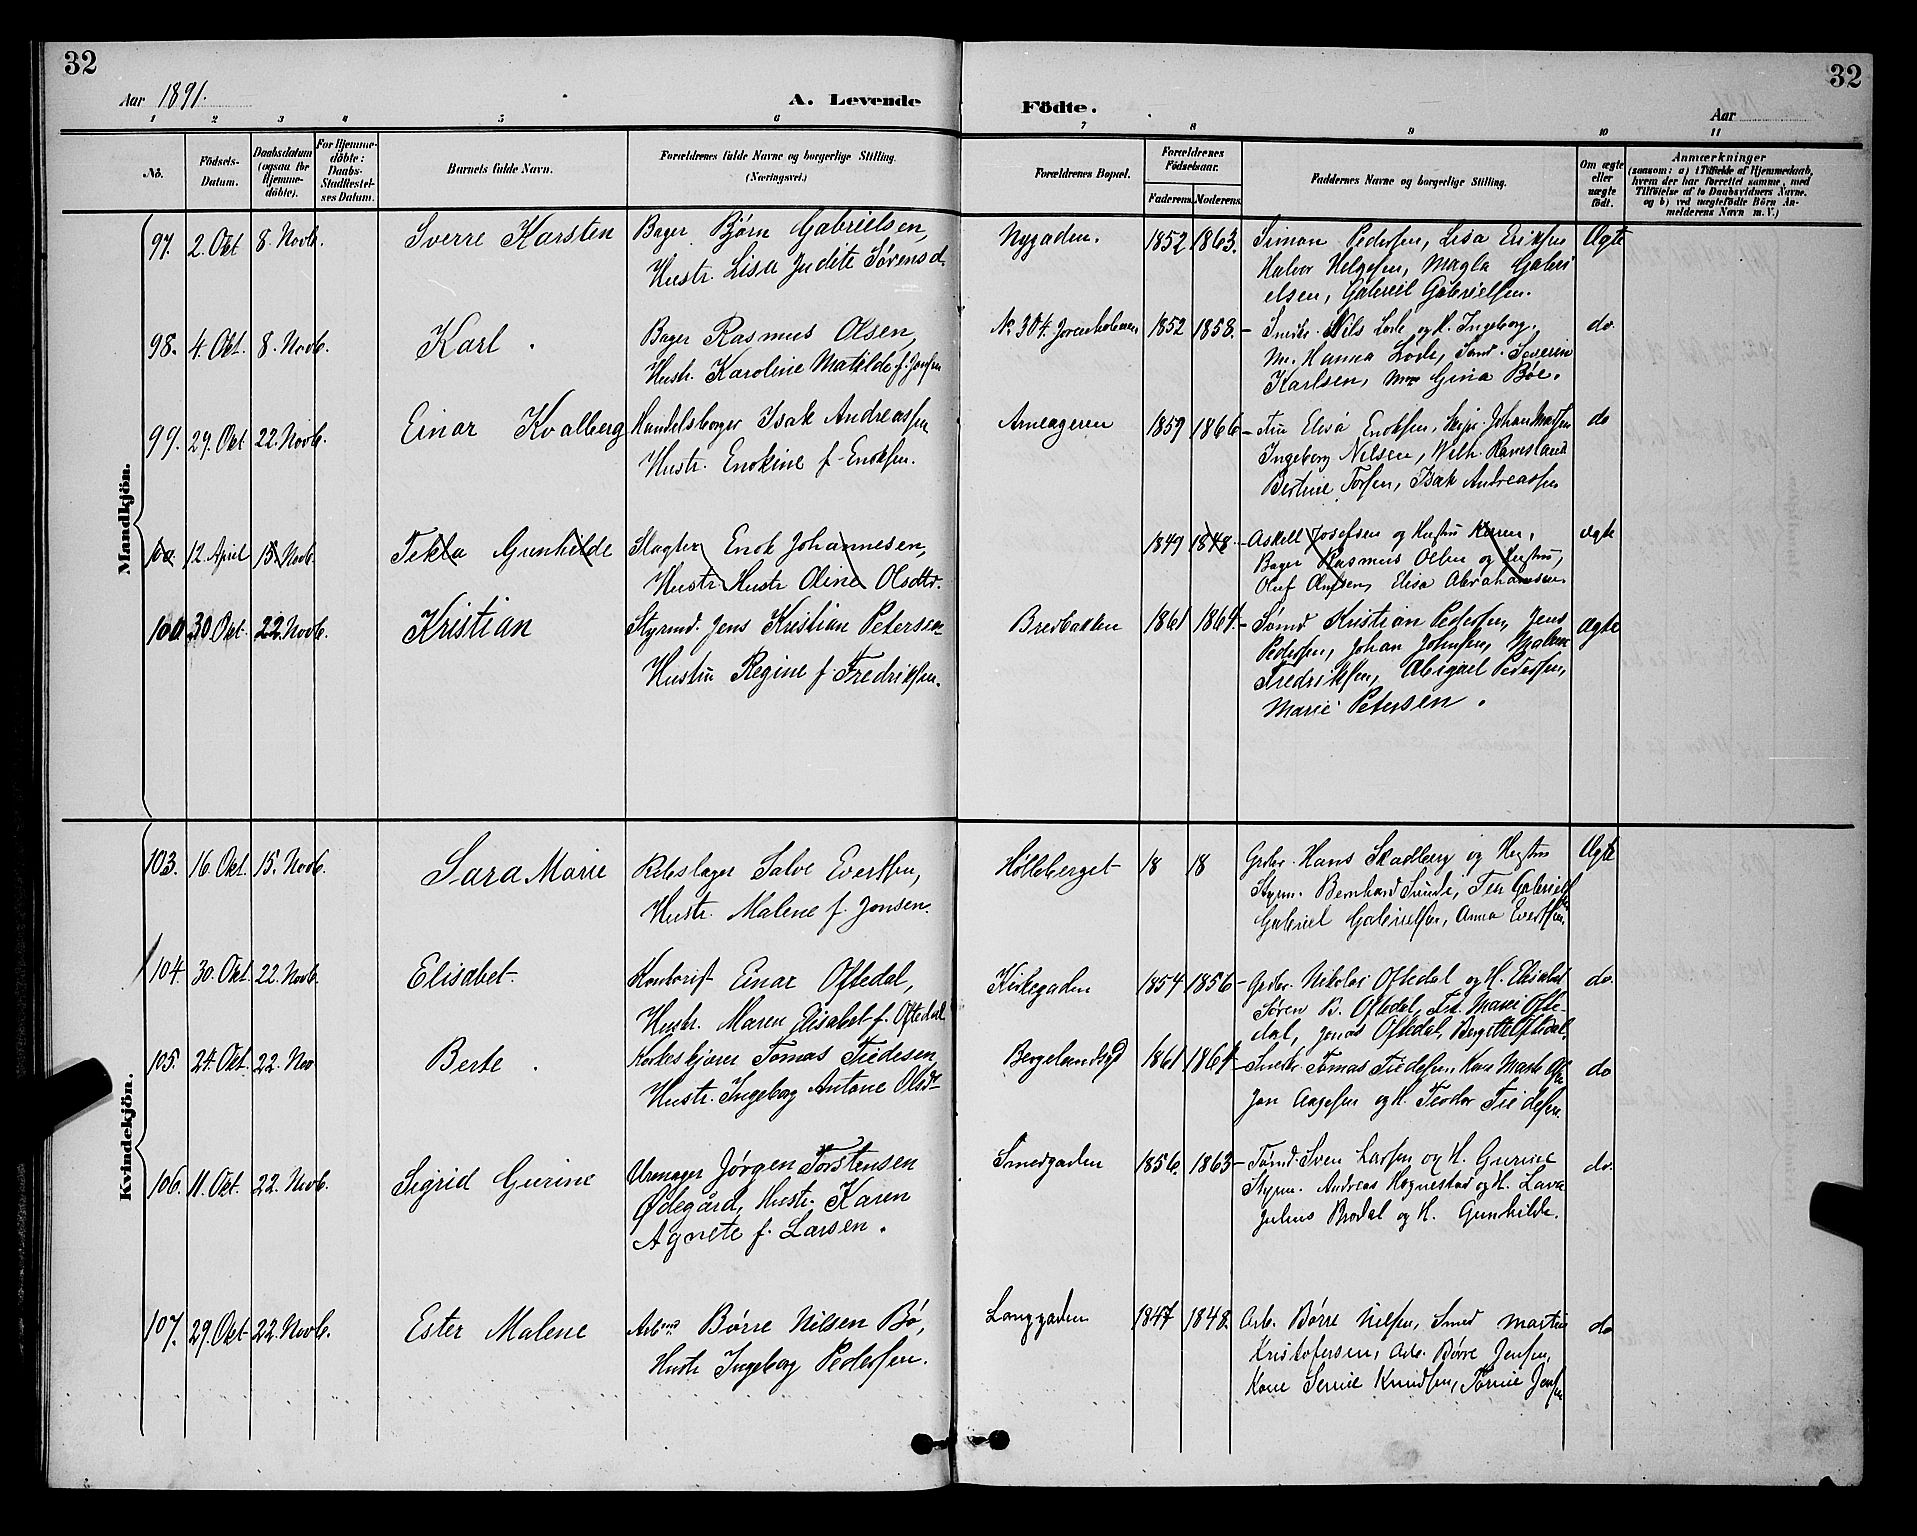 32
32
Aar 1891.
A. Levende
Födte.
Aar
1 2 3 4 5 6 7 8 9 10 11
No.
Födsels-Datum.
Daabsdatum (ogsaa for Hjemmedöbte).
For Hjemmedöbte: Daabs-Stadfæstelses Datum.
Barnets fulde Navn.
Forældrenes fulde Navne og borgerlige Stilling.
(Næringsvei.)
Forældrenes Bopæl.
Forældrenes Födselsaar.
Faderens. Moderens.
Faddernes Navne og borgerlige Stilling.
Om ægte eller uægte födt.
Anmærkninger
(saasom: a) i Tilfælde af Hjemmedaab,
hvem der har forrettet samme, med
Tilföielse af to Daabsvidners Navne.
og b) ved uægtefödte Börn Anmelderens Navn m. V.)
Mandkjön.
97. 2. Okt 8. Novb. Sverre Karsten Bager Bjørn Gabrielsen, Nygaden. 1852 1863. Simon Pedersen, Lisa Eriksen Ægte
Hustr. Lisa Judite Sørensd. Halvor Helgesen, Magla Gabri
elsen, Gabriel Gabrielsen.
98. 4. Okt. 8. Novb. Karl. Bager Rasmus Olsen, No 304. 1852 1858. Nils Lode og H. Ingeborg, do
Hustr. Karoline Matilde f. Jensen Hanna Lode, Severin
Karlsen, Gina Bøe.
99. 29. Okt 22. Novb. Einar Kvalberg Handelsborger Isak Andreassen 1859 1866 Elisa Enoksen, Skipr. Johan do
Hustr. Enokine f. Enoksen. Ingeborg Nilsen, Wilh. Ramsland
Bertine Torsen, Isak Andreassen
100 12 April 15. Novb. Tekla Gunhilde Slagter Enok Johannesen, 1849 1848 Askell Josefsen og Hustru Karen, ægte
Hustr. Hustr Oline Olsdtr. Bager Rasmus Olsen og Hustru,
Oluf Olufsen, Elisa Abrahamsen
100 30. Okt. 22. Novb. Kristian Styrmd. Jens Kristian Petersen Bredbakken 1861 1864. Sømd Kristian Pedersen, Jens Ægte
Hustru Regine f. Fredriksen. Pedersen, Johan Johnsen, Malene
Fredriksen, Abigael Pedersen,
Marie Petersen.
Kvindekjön.
103. 16. Okt. 15. Novb. Sara Marie Rebslager Salve Evertsen, Hølleberget 18 18 Grdbr. Hans Skadberg og Hustru Ægte
Hustr. Malene f. Jonsen. Styrm. Bernhard Sunde, Tea Gabriels
Gabriel Gabrielsen, Anna Evertsen.
104. 30. Okt 22. Novb. Elisabet Kontorist Einar Oftedal, Kirkegaden 1854 1856 Grdbr. Nikolai Oftedal og H. Elisabet do.
Hustr. Maren Elisabet f. Oftedal Søren B. Oftedal, Frk. Marie Ofte
dal, Jonas Oftedal, Oftedal.
105. 24. Okt. 22. Nov Berte. Korkeskjærer Tomas Tiedesen 1861 1864 Snedkr Tomas Tiedesen, do
Hustr. Ingeborg Antone Olsdt. Jon Aagesen og H. Teodor Tiedesen.
106. 11. Okt. 22. Novb. Sigrid Gurine Urmager Jørgen Torstensen Smedgaden 1856. 1863 Tømd. Sven Larsen og H. Gurine do.
Ødegård, Hustr. Karen Styrm. Andreas Hognestad og H. Lava
Agnete f. Larsen. Julius Brodal og H. Gunhilde.
107. 29. Okt 22. Novb. Ester Malene Arbmd Børre Nilsen Bø, Langgaden 1847 1848. Arb. Børre Nilsen, Smed Martin do
Hustr Ingeborg Pedersen. Kristofersen, Arb. Børre Jensen,
Kone Serine Knudsen, Tomine Jensen